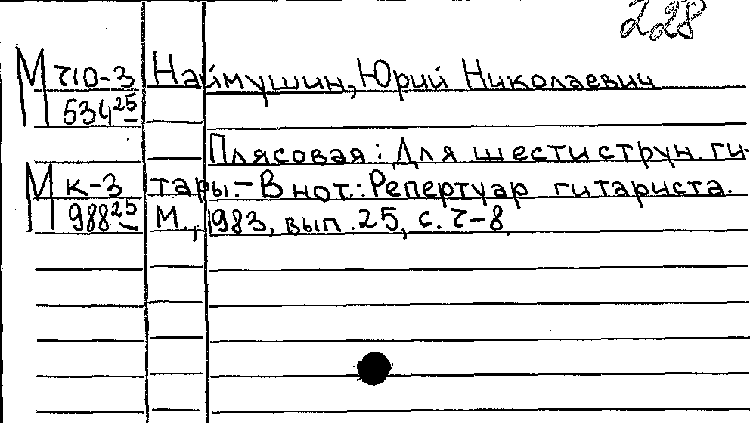 228
М т10-3 Наймушин, Юрий Николаевич
534 25
Плясовая: Для шестиструн. ги-
М к-3 тары.- В нот.: Репертуар гитариста.
988 25 М., 1983, вып. 25, с. 7-8.